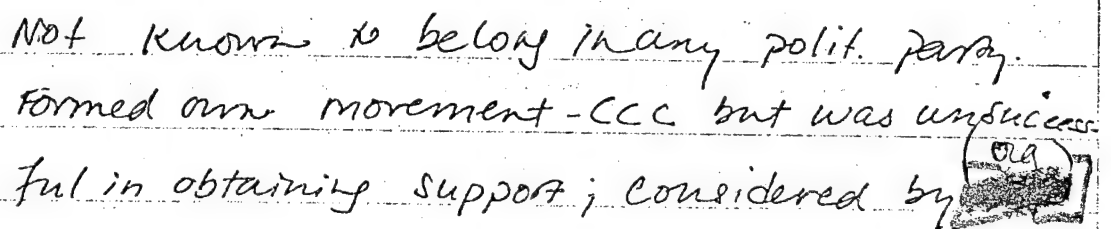 Not known to belong in any polit. party.
Formed own movement - CCC but was unsuccess-
ful in obtaining support; considered by org